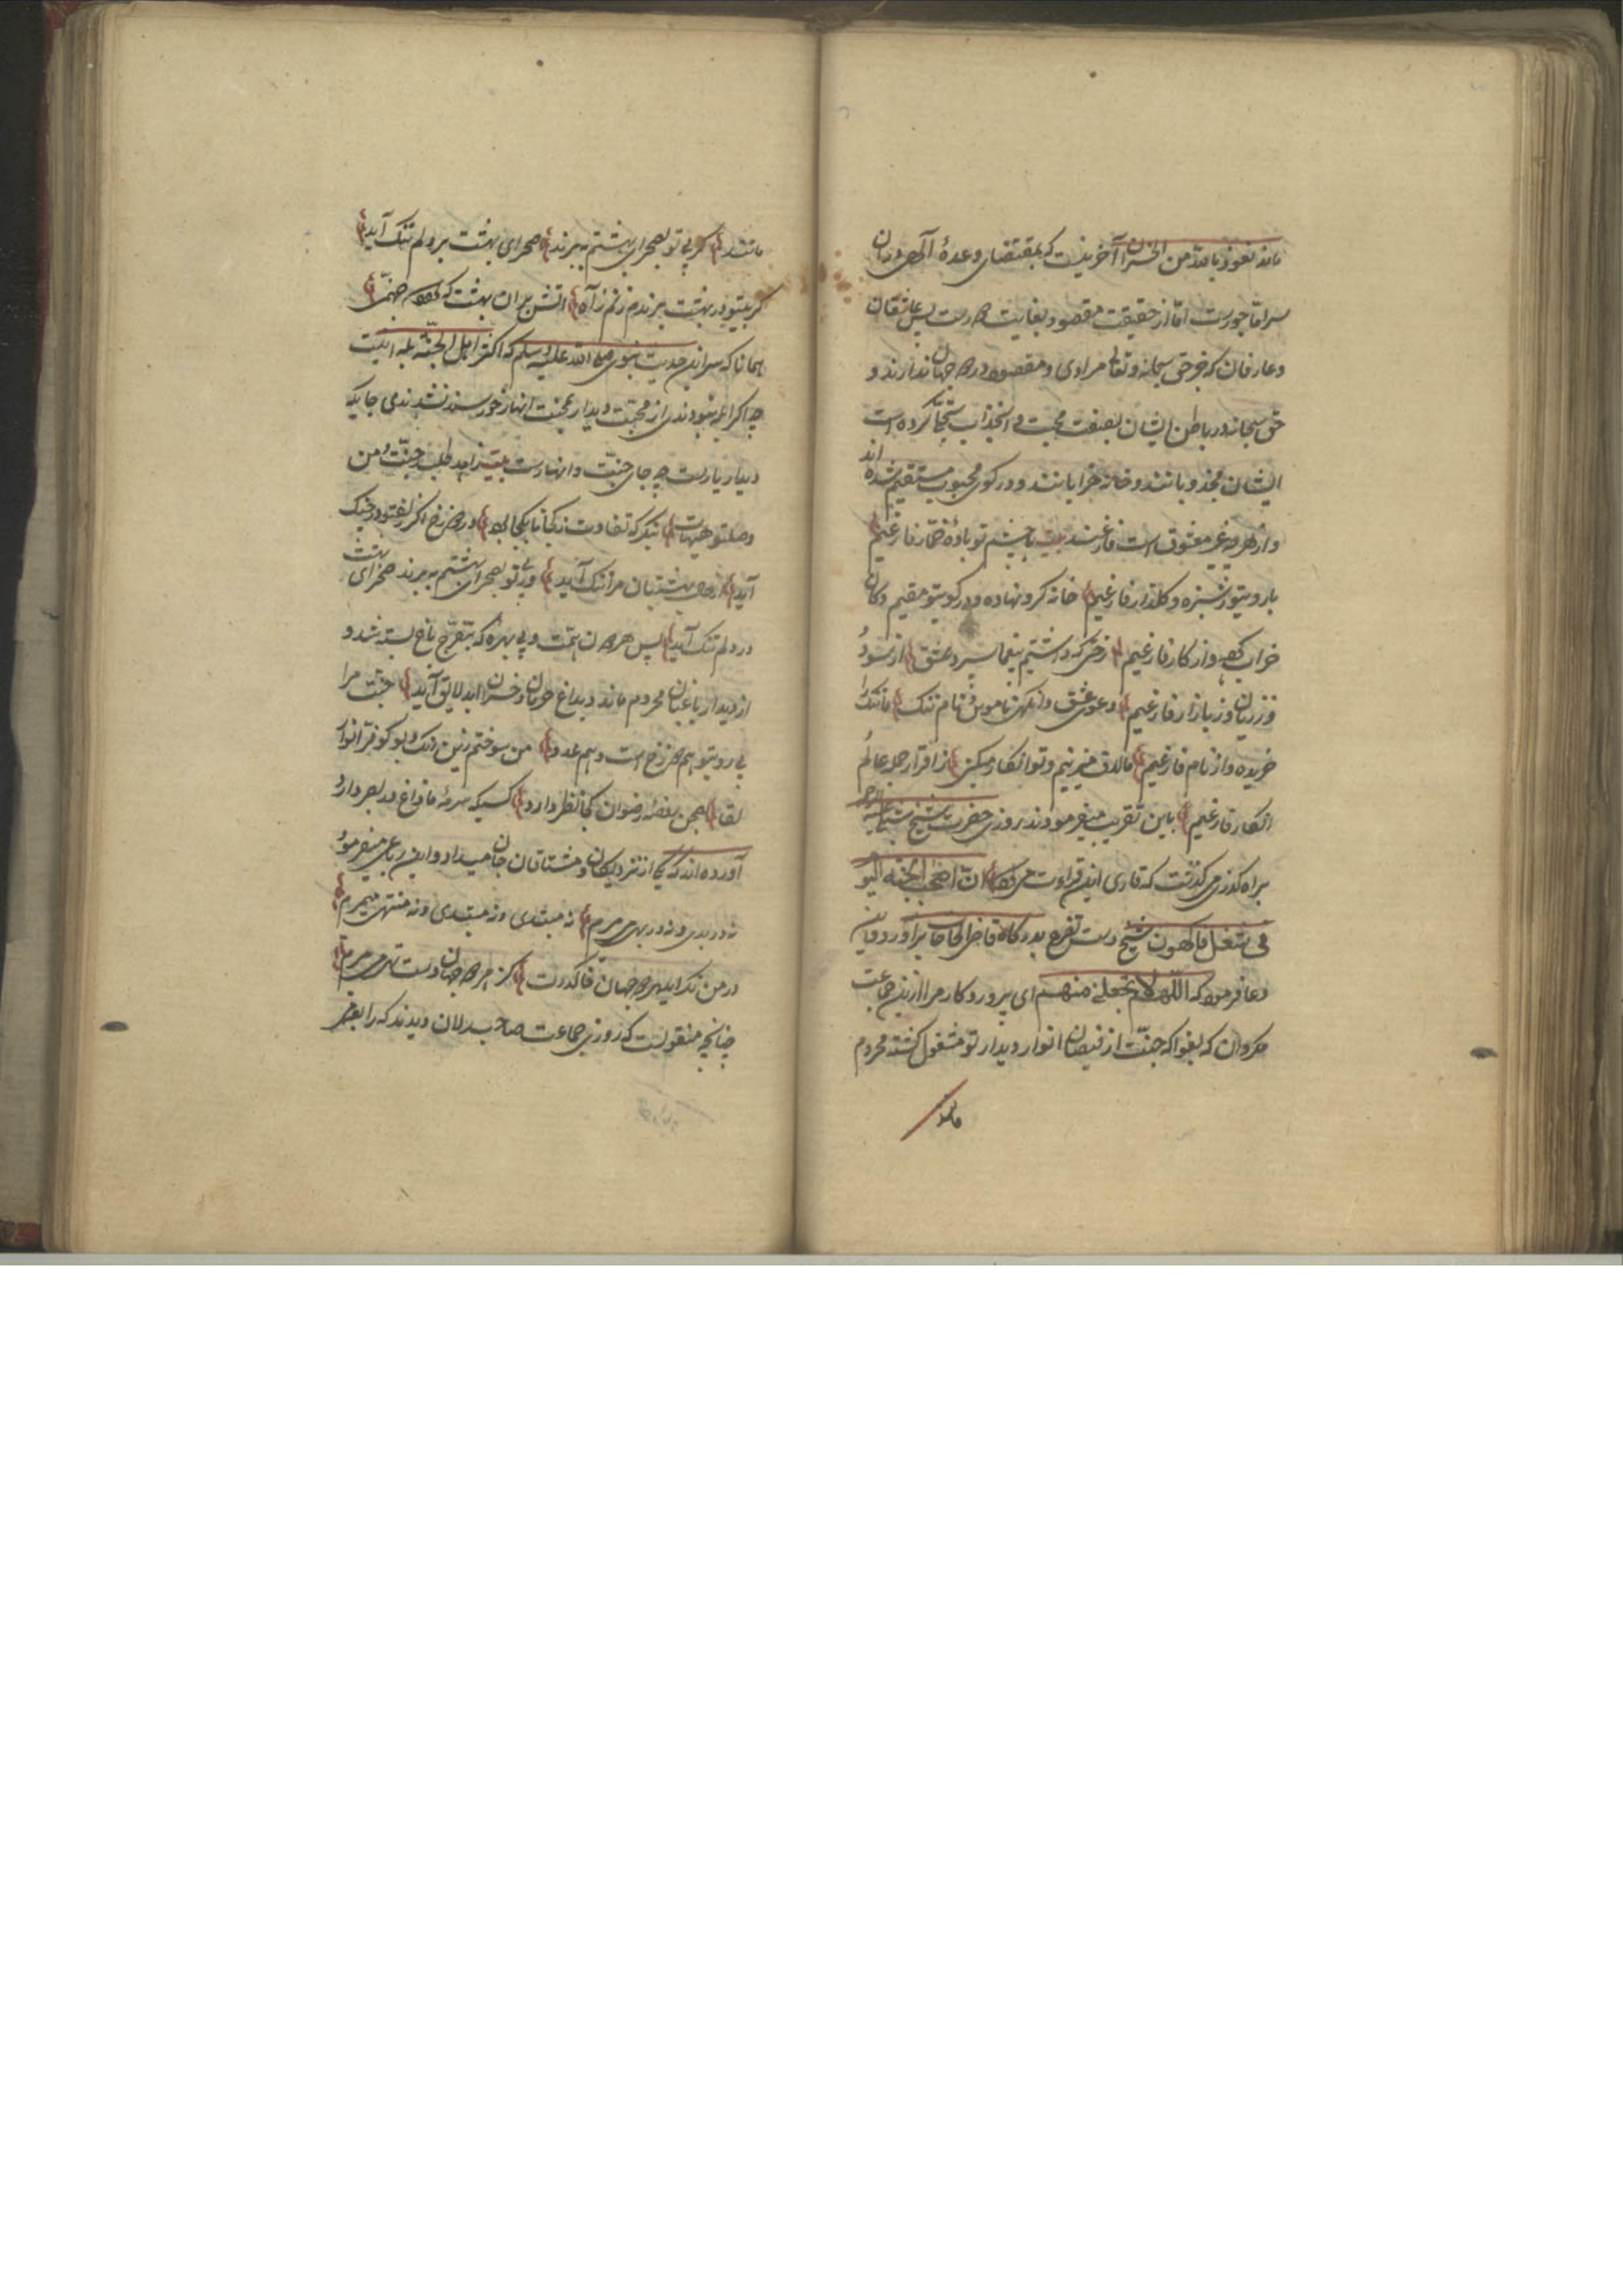 ماند نعوذ بالله من الخسران آخرینست که بمقتضای وعدهٔ الهی دران
سرا ماجورست اما از حقیقت مقصود بغایت دورست پس عاشقان
وعارفان که جز حق سبحانه وتعالی مرادی ومقصودی در دو جهان ندارند و
حق سبحانه در باطن ایشان بصفت محبت وانجذاب تجلی کرده است
ایشان مجذوبانند وخانه خرابانند ودر کوی محبوب مستقیم شده اند
واز هر چه غیر معشوق است فارغند بیت با چشم تو باده خمار فارغیم
با روی تو ز سبزه وگلزار فارغیم خانه گرو نهاده ودر کوی تو مقیم دکان
خراب کرده واز کار فارغیم رختی که داشتیم بیغما ببرد عشق از سود
وز زیان وز بازار فارغیم دعوی عشق وانگهی ناموس ونام ننگ ما ننگ را
خریده واز نام فارغیم ما لاف میزنیم وتو انکار میکنی ز اقرار هر دو عالم
انکار فارغیم باین تقریب میفرمودند روزی حضرت شیخ شبلی علیه الرحمه
براه گذری میگذشت که قاری این قراءت می کرد ان اصحب الجنة الیوم
فی شغل فاکهون شیخ دست تضرع بدرگاه قاضی الحاجات برآورد واین
دعا فرمود که اللهم لا تجعلنی منهم ای پروردگار مرا ازین جماعت
مگردان که بفواکه جنت از فیضان انوار دیدار تو مشغول گشته محروم
ماندند
ماندند گر بی تو بصحرای بهشتم به برند صحرای بهشت بر دلم تنک آید
گر بیتو در بهشت برندم زنم ز آه آتش بران بهشت که گردد جهنمی
همانا که سر این حدیث نبوی صلی الله علیه وسلم که اکثر اهل الجنة بله اینست
چه اگر ابله نبودندی از محبت دیدار بجنت انهار خورسند نشدندی جاییکه
دیدار یارست چه جای جنت وانهارست بیت زاهد طلبد جنت ومن
وصل تو هیهات بنگر که تفاوت ز کجا تا بکجا بود در دوزخ اگر زلف تو در چنگ
آید از حال بهشتیان مرا ننگ آید ور بی تو بصحرای بهشتم به برند صحرای بهشت
در دلم تنک آید پس هر دون همت وبی بهره که بتفرج باغ بسته شد و
از دیدار باغبان محروم ماند وبداغ حرمان وخسران ابد لایق آید جنت مرا
بی روی تو هم دوزخ است وهم عدو من سوختم زین رنک وبو کو فر انوار
لقا بصحن روضهٔ رضوان کجا نظر دارد کسیکه سرمهٔ ما زاغ در بصر دارد
آورده اند که یکی از نزدیکان ومشتاقان جان میداد واین رباعی میفرمود
نه در بدی ونه در بهی می میرم نه مبتدی ونه منتهی میمیرم
در من نگر ای هر دو جهان خاک درت کز هر دو جهان دست تهی می میرم
چنانچه منقولست که روزی جماعت صاحبدلان دیدند که رابعه